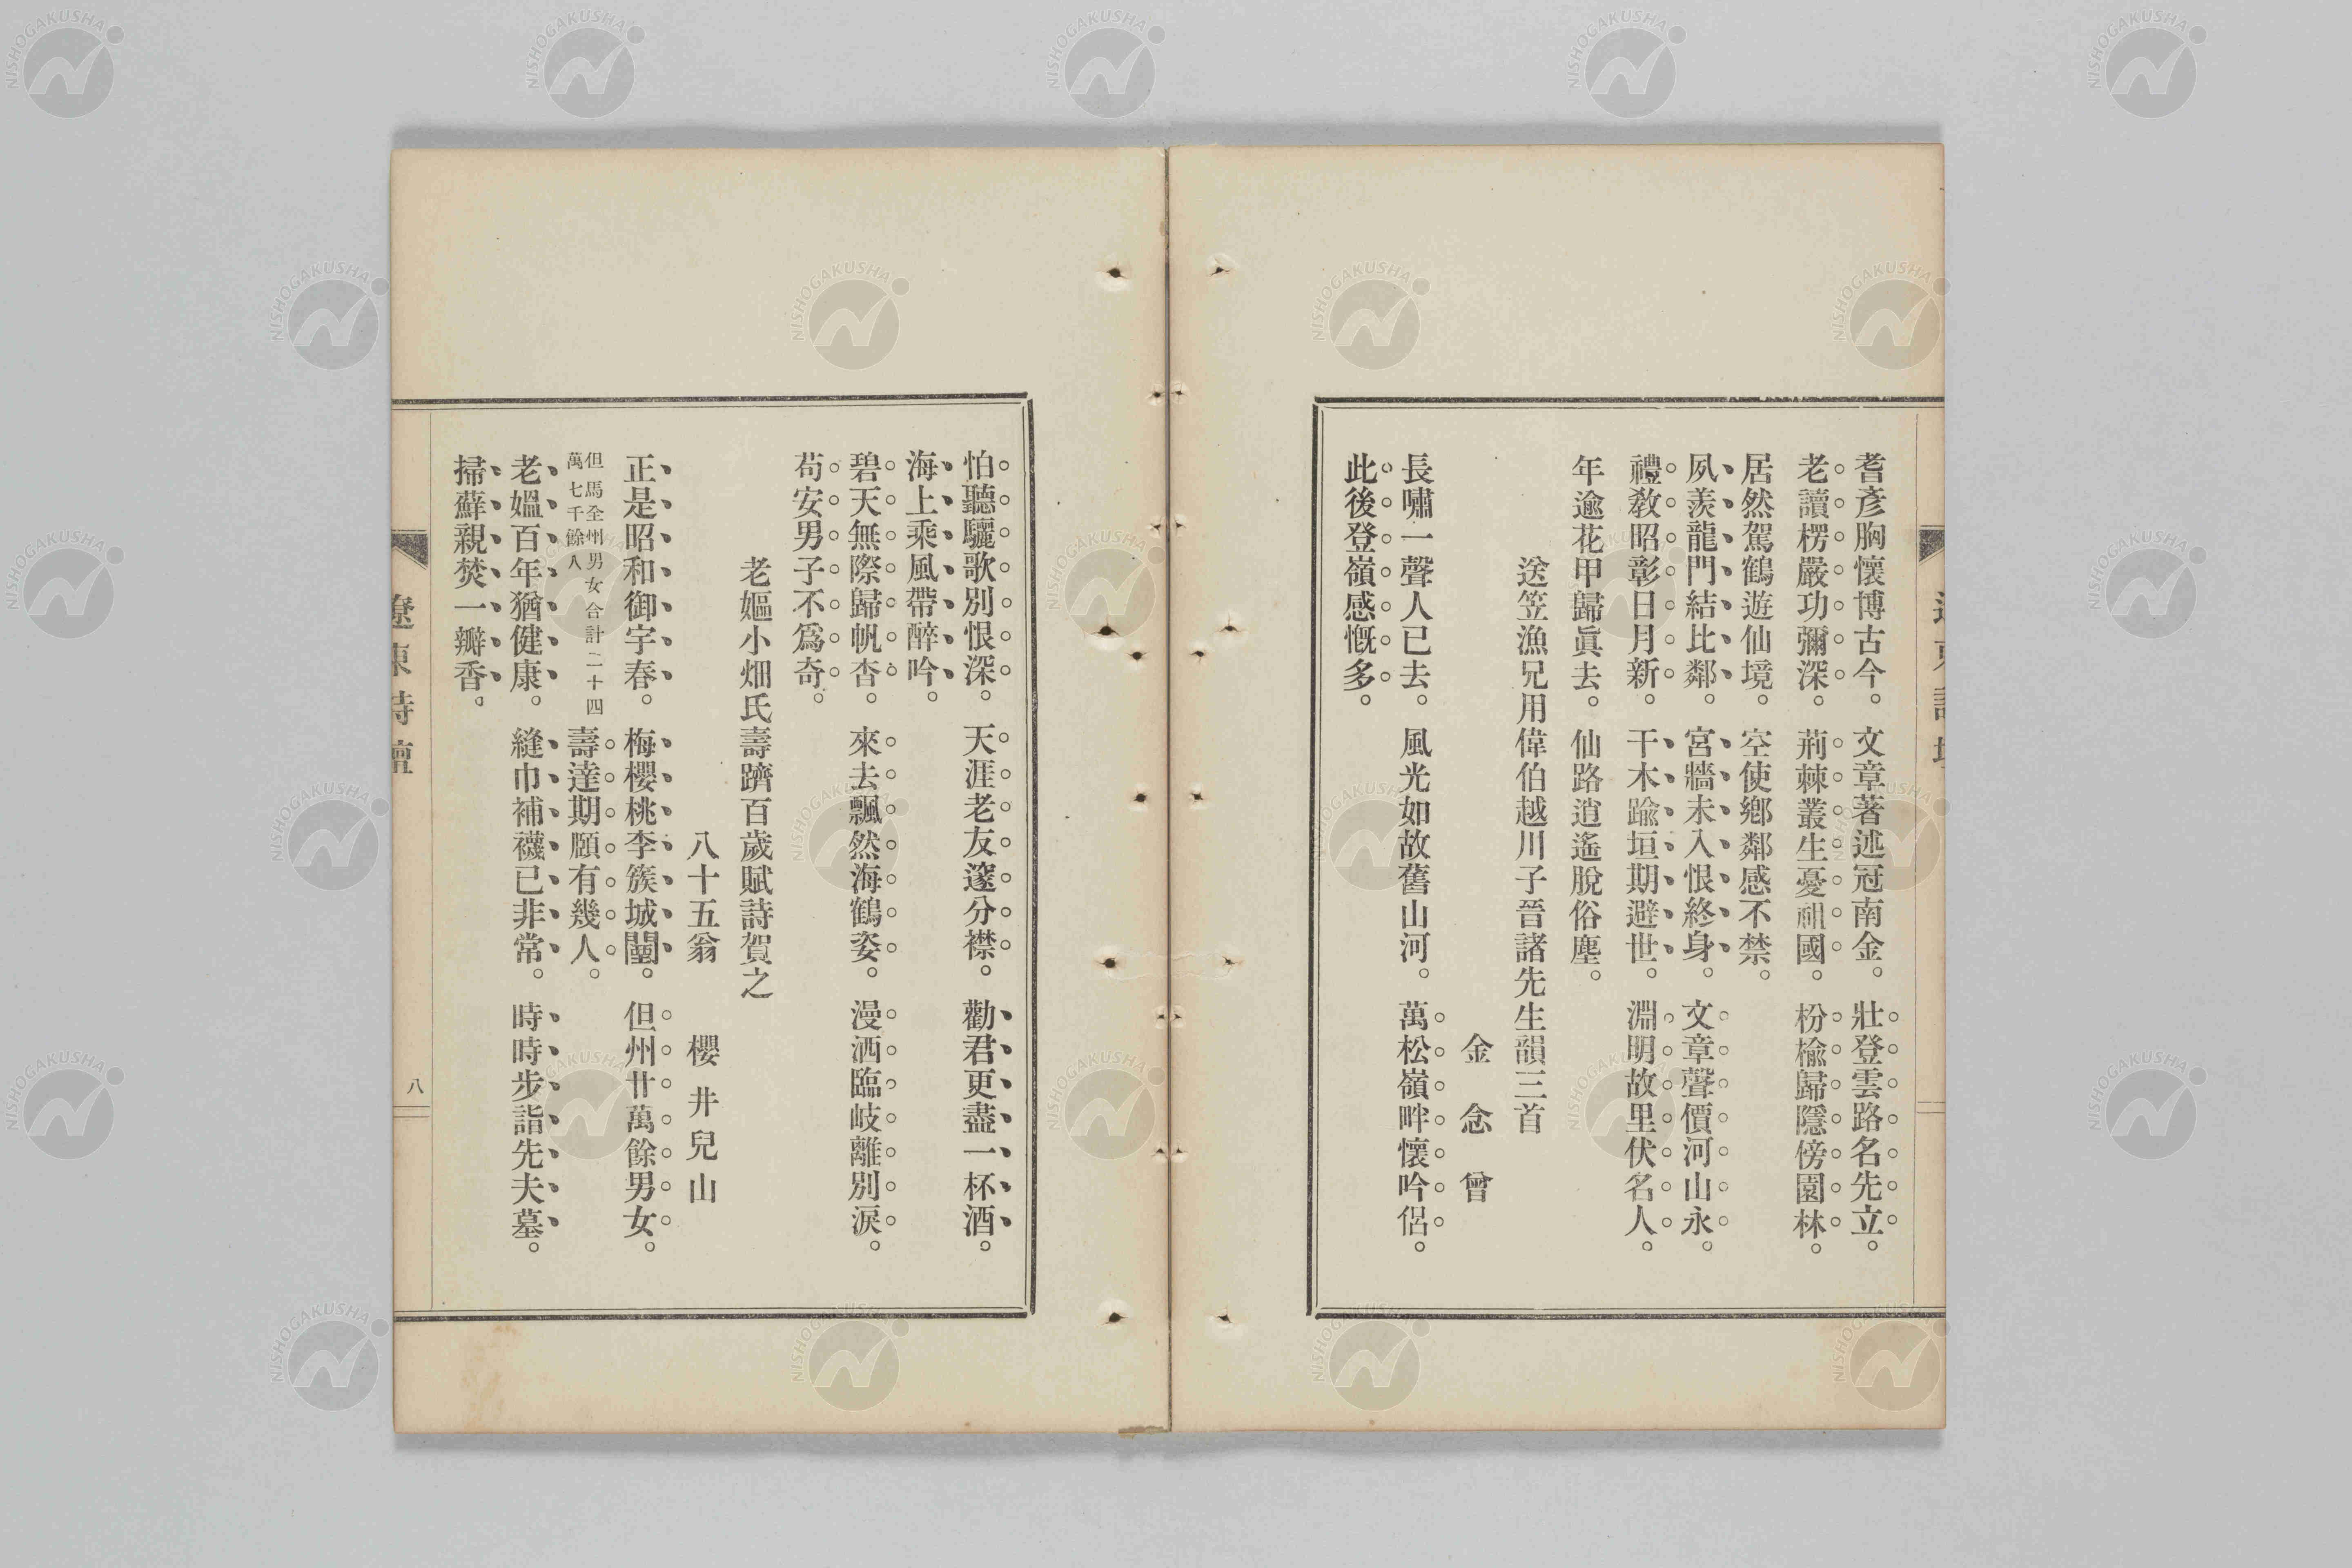 耆彥胸懷博古今。文章著述冠南金。壯登雲路名先立。
老讀楞嚴功彌深。荊棘叢生憂祖國。枌楡歸隱傍園林。
居然駕鶴遊仙境。空使鄕鄰感不禁。
夙羨龍門結比鄰。宮牆未入恨終身。文章聲價河山永。
禮敎昭彰日月新。干木踰垣期避世。淵明故里伏名人。
年逾花甲歸眞去。仙路逍遙脫俗塵。
送笠漁兄用偉伯越川子晉諸先生韻三首
金念曾
長嘯一聲人已去。風光如故舊山河。萬松嶺畔懷吟侶。
此後登嶺感慨多。
怕聽驪歌別恨深。天涯老友邃分襟。勸君更盡一杯酒。
海上乘風帶醉吟。
碧天無際歸帆杳。來去飄然海鶴姿。漫洒臨岐離別淚。
苟安男子不爲奇。
老嫗小畑氏壽躋百歲賦詩賀之
八十五翁 櫻井兒山
正是昭和御宇春。梅櫻桃李簇城闉。但州廿萬餘男女。
但馬全州男女合計二十四
萬七千餘人
壽達期頤有幾人。
老媼百年猶健康。縫巾補襪已非常。時時步詣先夫墓。
掃蘚親焚一瓣香。
遼東詩壇
八
NISHOGAKUSHA